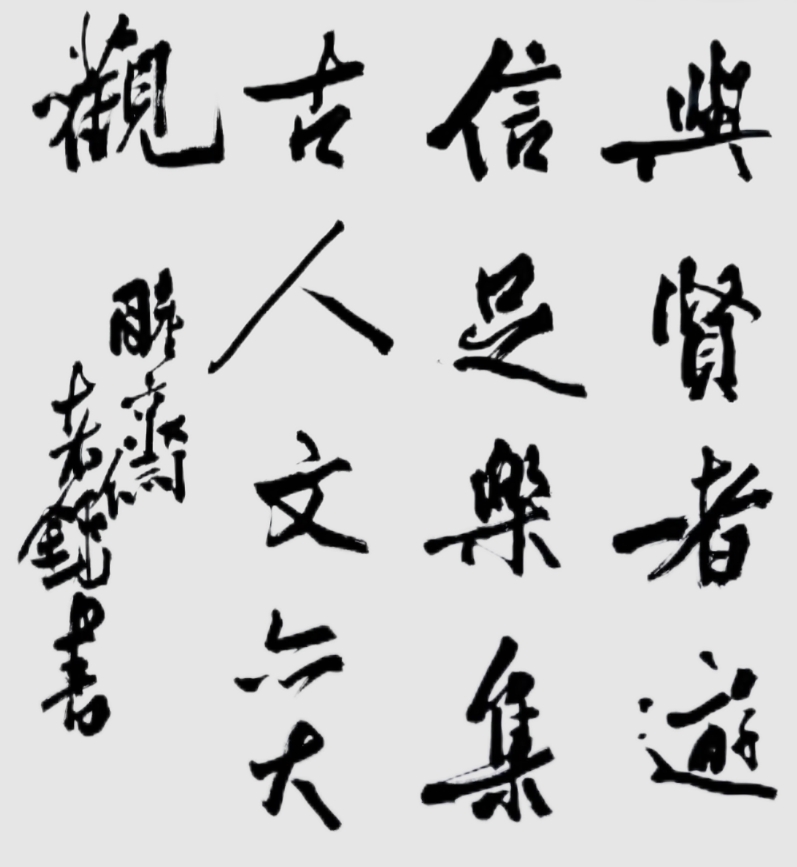 與賢者遊
信足樂集
古人文亦大
觀
齋
老
書